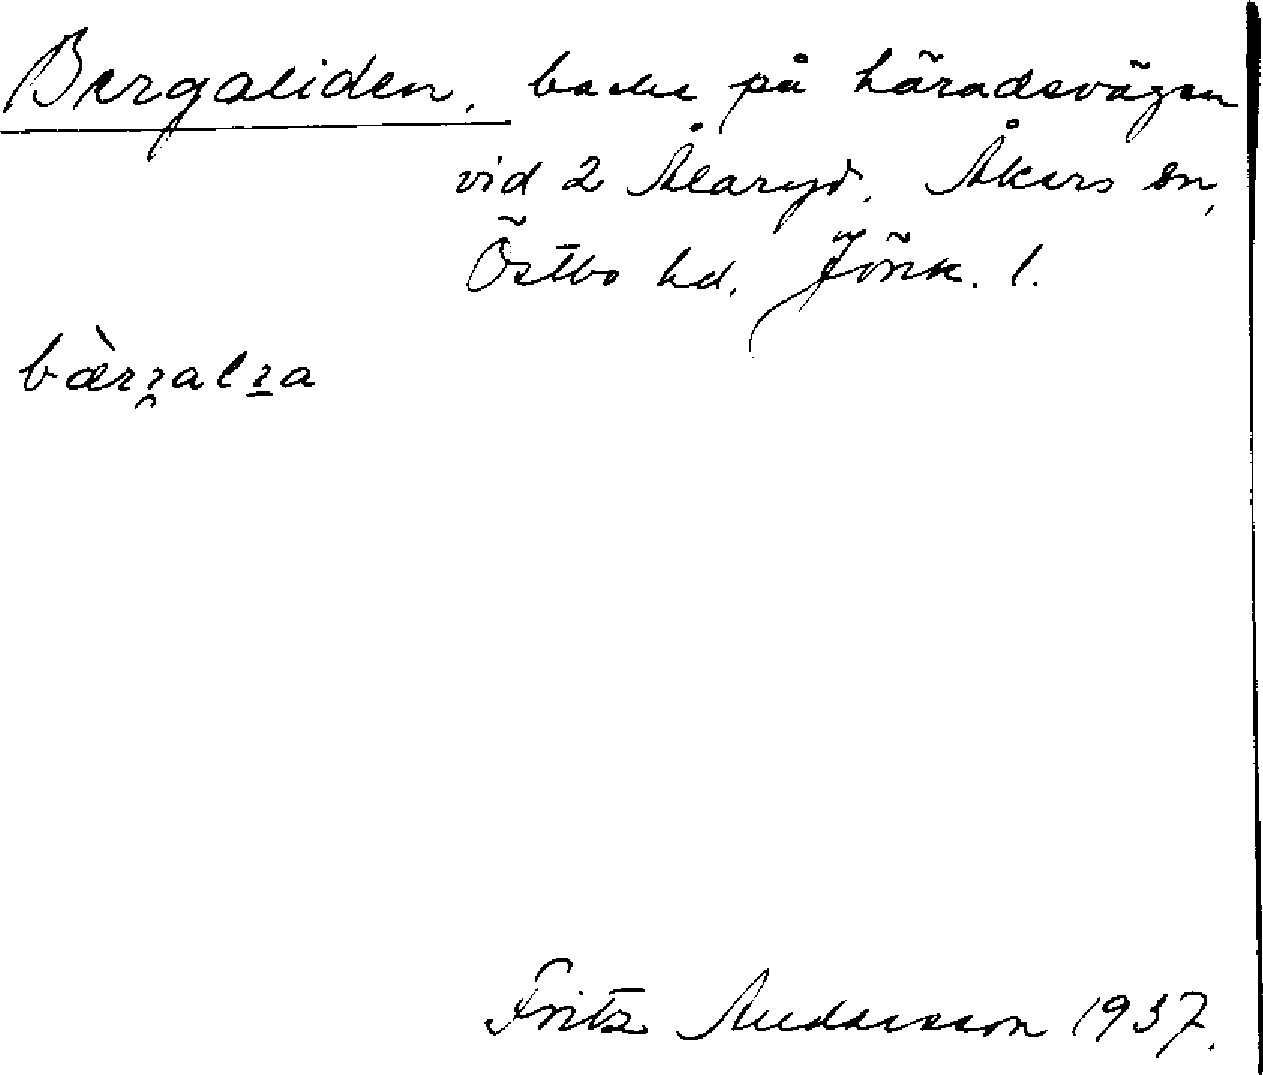 Bergaliden, backe på häradsvägen
vid 2 Ålaryd. Åkers sn,
Östbo hd. Jönk. l.
Fritz Andersson 1937.